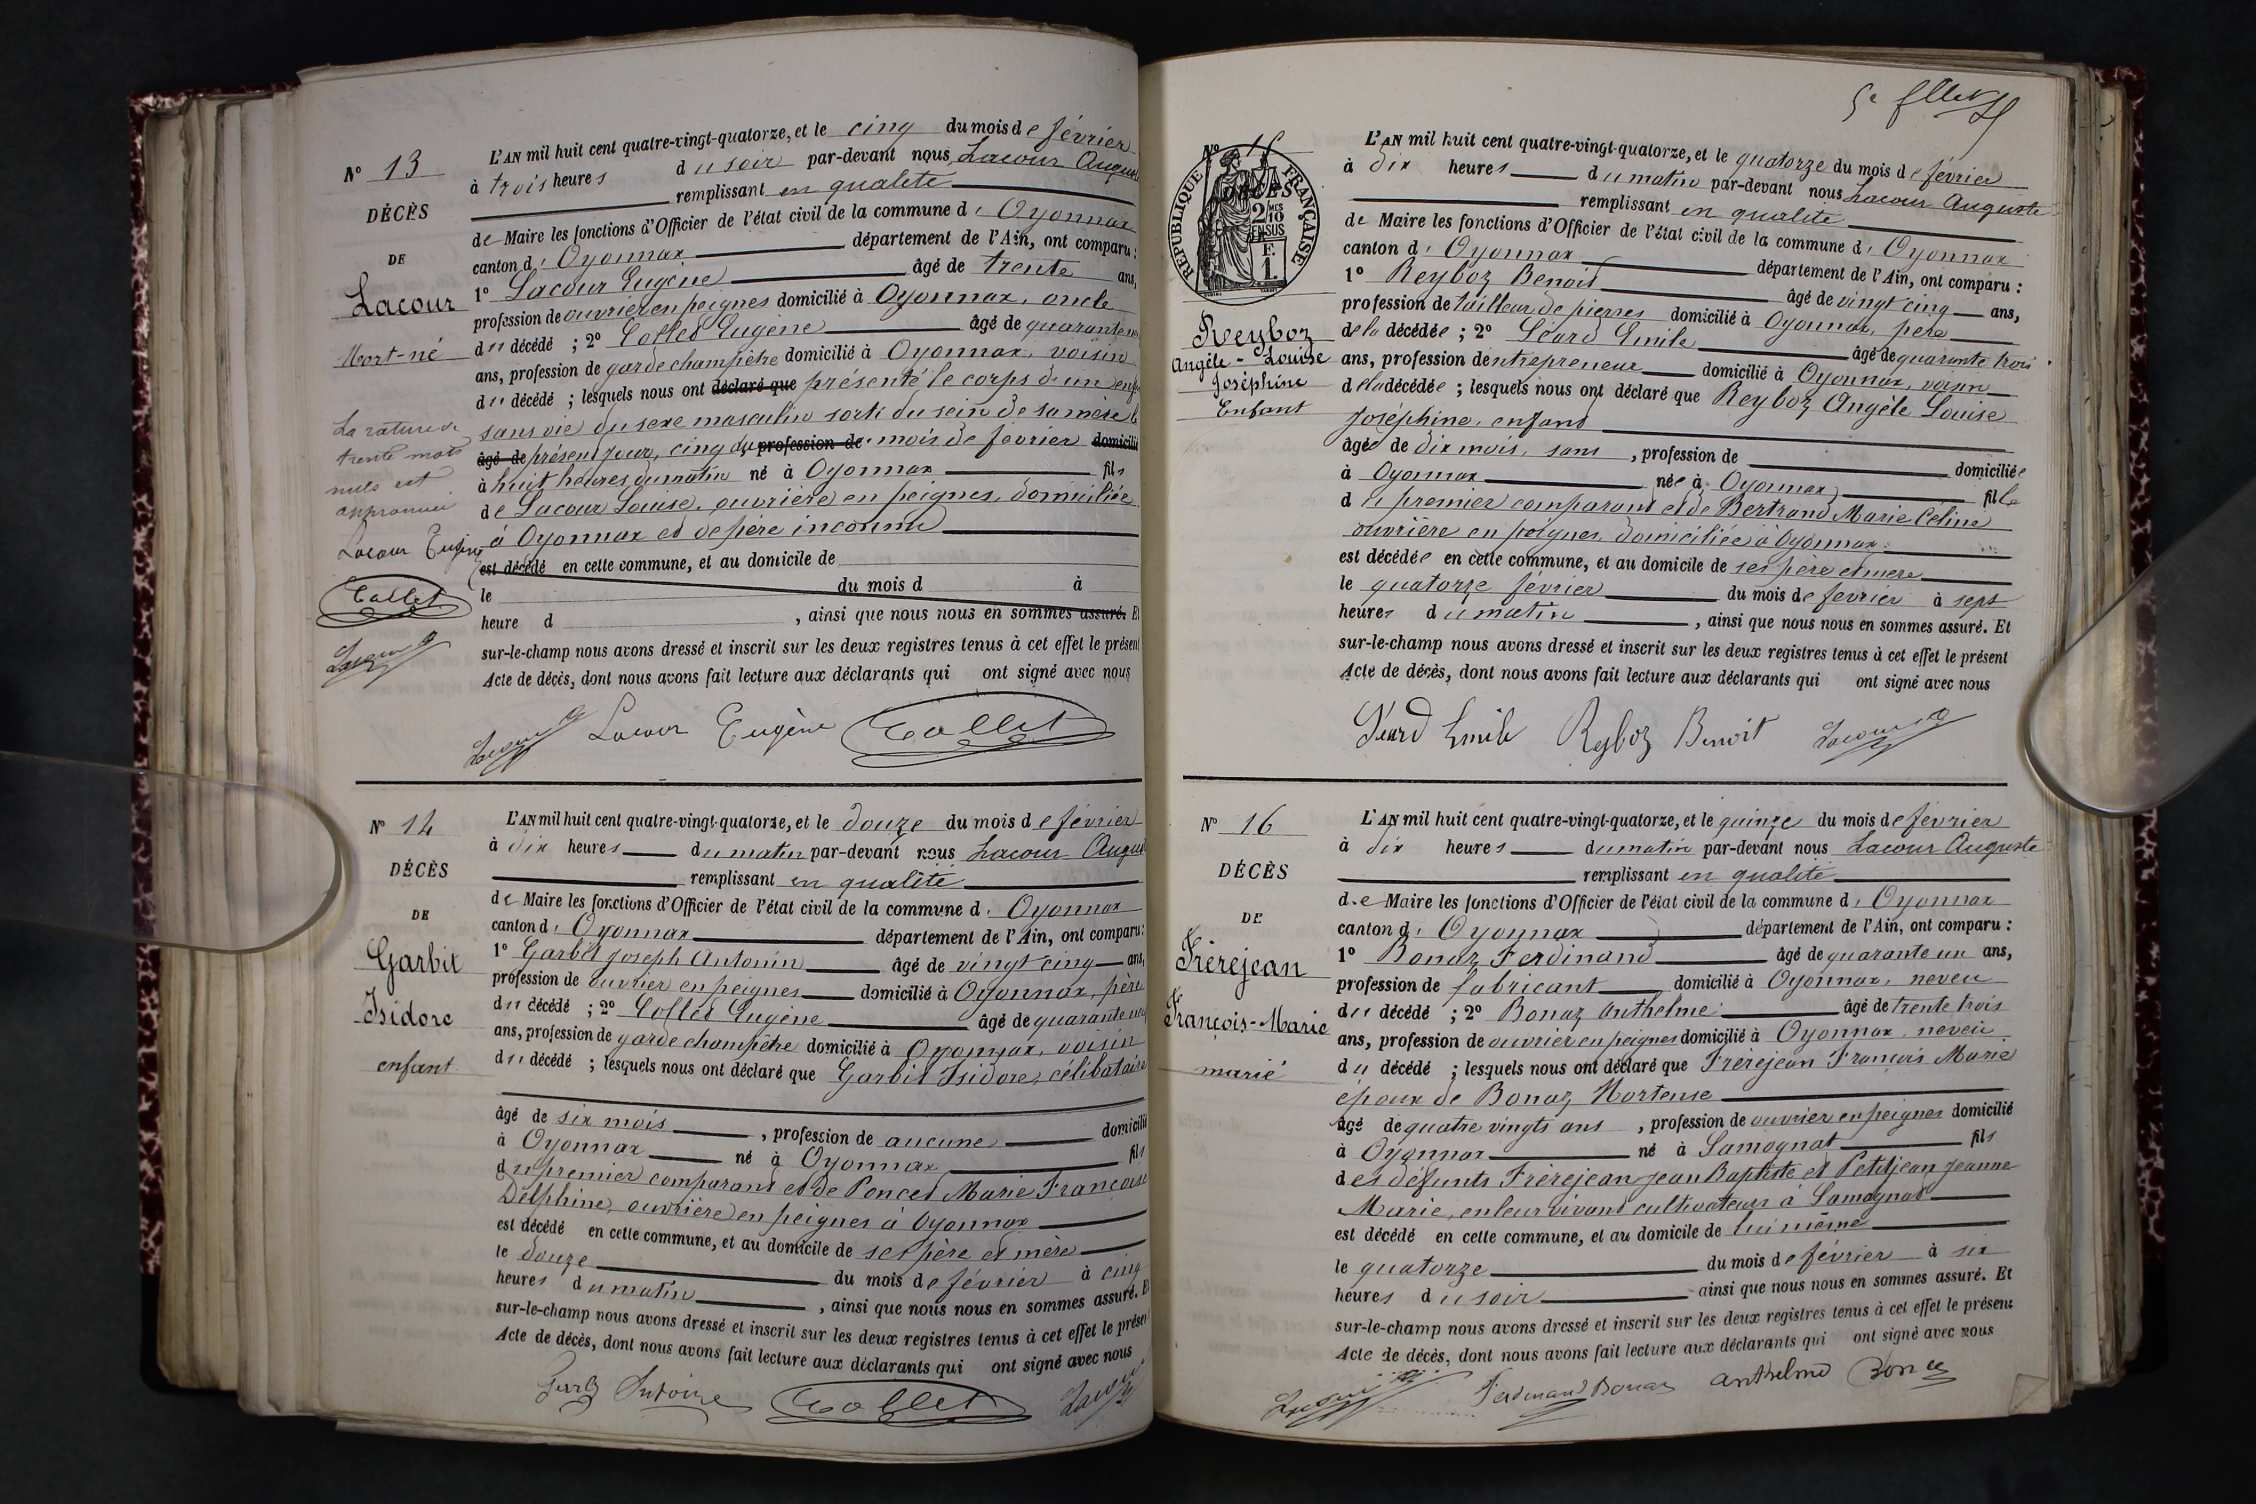 N° 13
DÉCÈS
DE
Lacour
Mort-né
La rature de
trente mots
nuls est
approuvée
Lacour Eugène
Collet
Lacour
L'AN mil huit cent quatre-vingt-quatorze, et le cinq du mois de février
à trois heures du soir par-devant nous Lacour Auguste
remplissant en qualité
de Maire les fonctions d'Officier de l'état civil de la commune d' Oyonnax
canton d' Oyonnax département de l'Ain, ont comparu :
1° Lacour Eugène âgé de trente ans,
profession de ouvrier en peignes domicilié à Oyonnax, oncle
du décédé ; 2° Collet Eugène âgé de quarante
ans, profession de garde champêtre domicilié à Oyonnax, voisin
du décédé ; lesquels nous ont déclaré que présenté le corps d'un enfant
sans vie du sexe masculin sorti du sein de sa mère le
âgé de présent jour, cinq du profession de mois de février domicilié
à huit heures du matin né à Oyonnax fils
de Lacour Louise, ouvrière en peignes, domiciliée
à Oyonnax et de père inconnu
est décédé en cette commune, et au domicile de
le du mois d à
heure d , ainsi que nous nous en sommes assuré. Et
sur-le-champ nous avons dressé et inscrit sur les deux registres tenus à cet effet le présent
Acte de décès, dont nous avons fait lecture aux déclarants qui ont signé avec nous
Lacour Lacour Eugène Collet
N° 14
DÉCÈS
DE
Garbit
Isidore
enfant
L'AN mil huit cent quatre-vingt-quatorze, et le douze du mois de février
à dix heures du matin par-devant nous Lacour Auguste
remplissant en qualité
de Maire les fonctions d'Officier de l'état civil de la commune d' Oyonnax
canton d' Oyonnax département de l'Ain, ont comparu :
1° Garbit Joseph Antonin âgé de vingt cinq ans,
profession de ouvrier en peignes domicilié à Oyonnax, père
du décédé ; 2° Collet Eugène âgé de quarante
ans, profession de garde champêtre domicilié à Oyonnax, voisin
du décédé ; lesquels nous ont déclaré que Garbit Isidore, célibataire
âgé de six mois , profession de aucune domicilié
à Oyonnax né à Oyonnax fils
du premier comparant et de Poncet Marie Françoise
Delphine, ouvrière en peignes à Oyonnax
est décédé en cette commune, et au domicile de ses père et mère
le douze du mois de février à cinq
heures du matin , ainsi que nous nous en sommes assuré. Et
sur-le-champ nous avons dressé et inscrit sur les deux registres tenus à cet effet le présent
Acte de décès, dont nous avons fait lecture aux déclarants qui ont signé avec nous
Collet Lacour
N° 15
RÉPUBLIQUE FRANÇAISE
2 10 MES EN SUS
F. 1.
Reyboz
Angèle-Louise
Joséphine
Enfant
L'AN mil huit cent quatre-vingt-quatorze, et le quatorze du mois de février
à dix heures du matin par-devant nous Lacour Auguste
remplissant en qualité
de Maire les fonctions d'Officier de l'état civil de la commune d' Oyonnax
canton d' Oyonnax département de l'Ain, ont comparu :
1° Reyboz Benoit âgé de vingt cinq ans,
profession de tailleur de pierres domicilié à Oyonnax, père
de la décédée ; 2° Léard Emile âgé de quarante trois
ans, profession d'entrepreneur domicilié à Oyonnax, voisin
de la décédée ; lesquels nous ont déclaré que Reyboz Angèle Louise
Joséphine, enfant
âgée de dix mois, sans , profession de domiciliée
à Oyonnax née à Oyonnax fille
du premier comparant et de Bertrand Marie Céline
ouvrière en peignes, domiciliée à Oyonnax
est décédée en cette commune, et au domicile de ses père et mère
le quatorze février du mois de février à sept
heures du matin , ainsi que nous nous en sommes assuré. Et
sur-le-champ nous avons dressé et inscrit sur les deux registres tenus à cet effet le présent
Acte de décès, dont nous avons fait lecture aux déclarants qui ont signé avec nous
Léard Emile Reyboz Benoit Lacour
N° 16
DÉCÈS
DE
Frèrejean
François-Marie
marié
L'AN mil huit cent quatre-vingt-quatorze, et le quinze du mois de février
à dix heures du matin par-devant nous Lacour Auguste
remplissant en qualité
de Maire les fonctions d'Officier de l'état civil de la commune d' Oyonnax
canton d' Oyonnax département de l'Ain, ont comparu :
1° Bonaz Ferdinand âgé de quarante un ans,
profession de fabricant domicilié à Oyonnax, neveu
du décédé ; 2° Bonaz Anthelme âgé de trente trois
ans, profession de ouvrier en peignes domicilié à Oyonnax, neveu
du décédé ; lesquels nous ont déclaré que Frèrejean François Marie
époux de Bonaz Hortense
âgé de quatre vingts ans , profession de ouvrier en peignes domicilié
à Oyonnax né à Samognat fils
des défunts Frèrejean Jean Baptiste et Petitjean Jeanne
Marie, en leur vivant cultivateurs à Samognat
est décédé en cette commune, et au domicile de lui même
le quatorze du mois de février à six
heures du soir ainsi que nous nous en sommes assuré. Et
sur-le-champ nous avons dressé et inscrit sur les deux registres tenus à cet effet le présent
Acte de décès, dont nous avons fait lecture aux déclarants qui ont signé avec nous
Lacour Ferdinand Bonaz Anthelme Bonaz